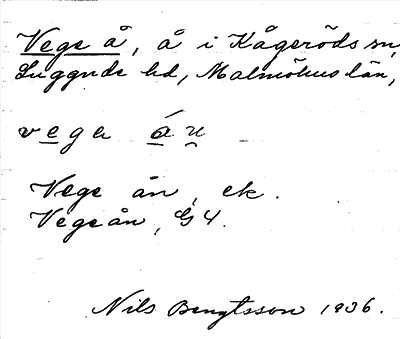 Vege å, å i Kågeröds sn,
Luggude hd, Malmöhus län,
vega áu
Vege ån, ek.
Vegeån, G4.
Nils Bengtsson 1936.